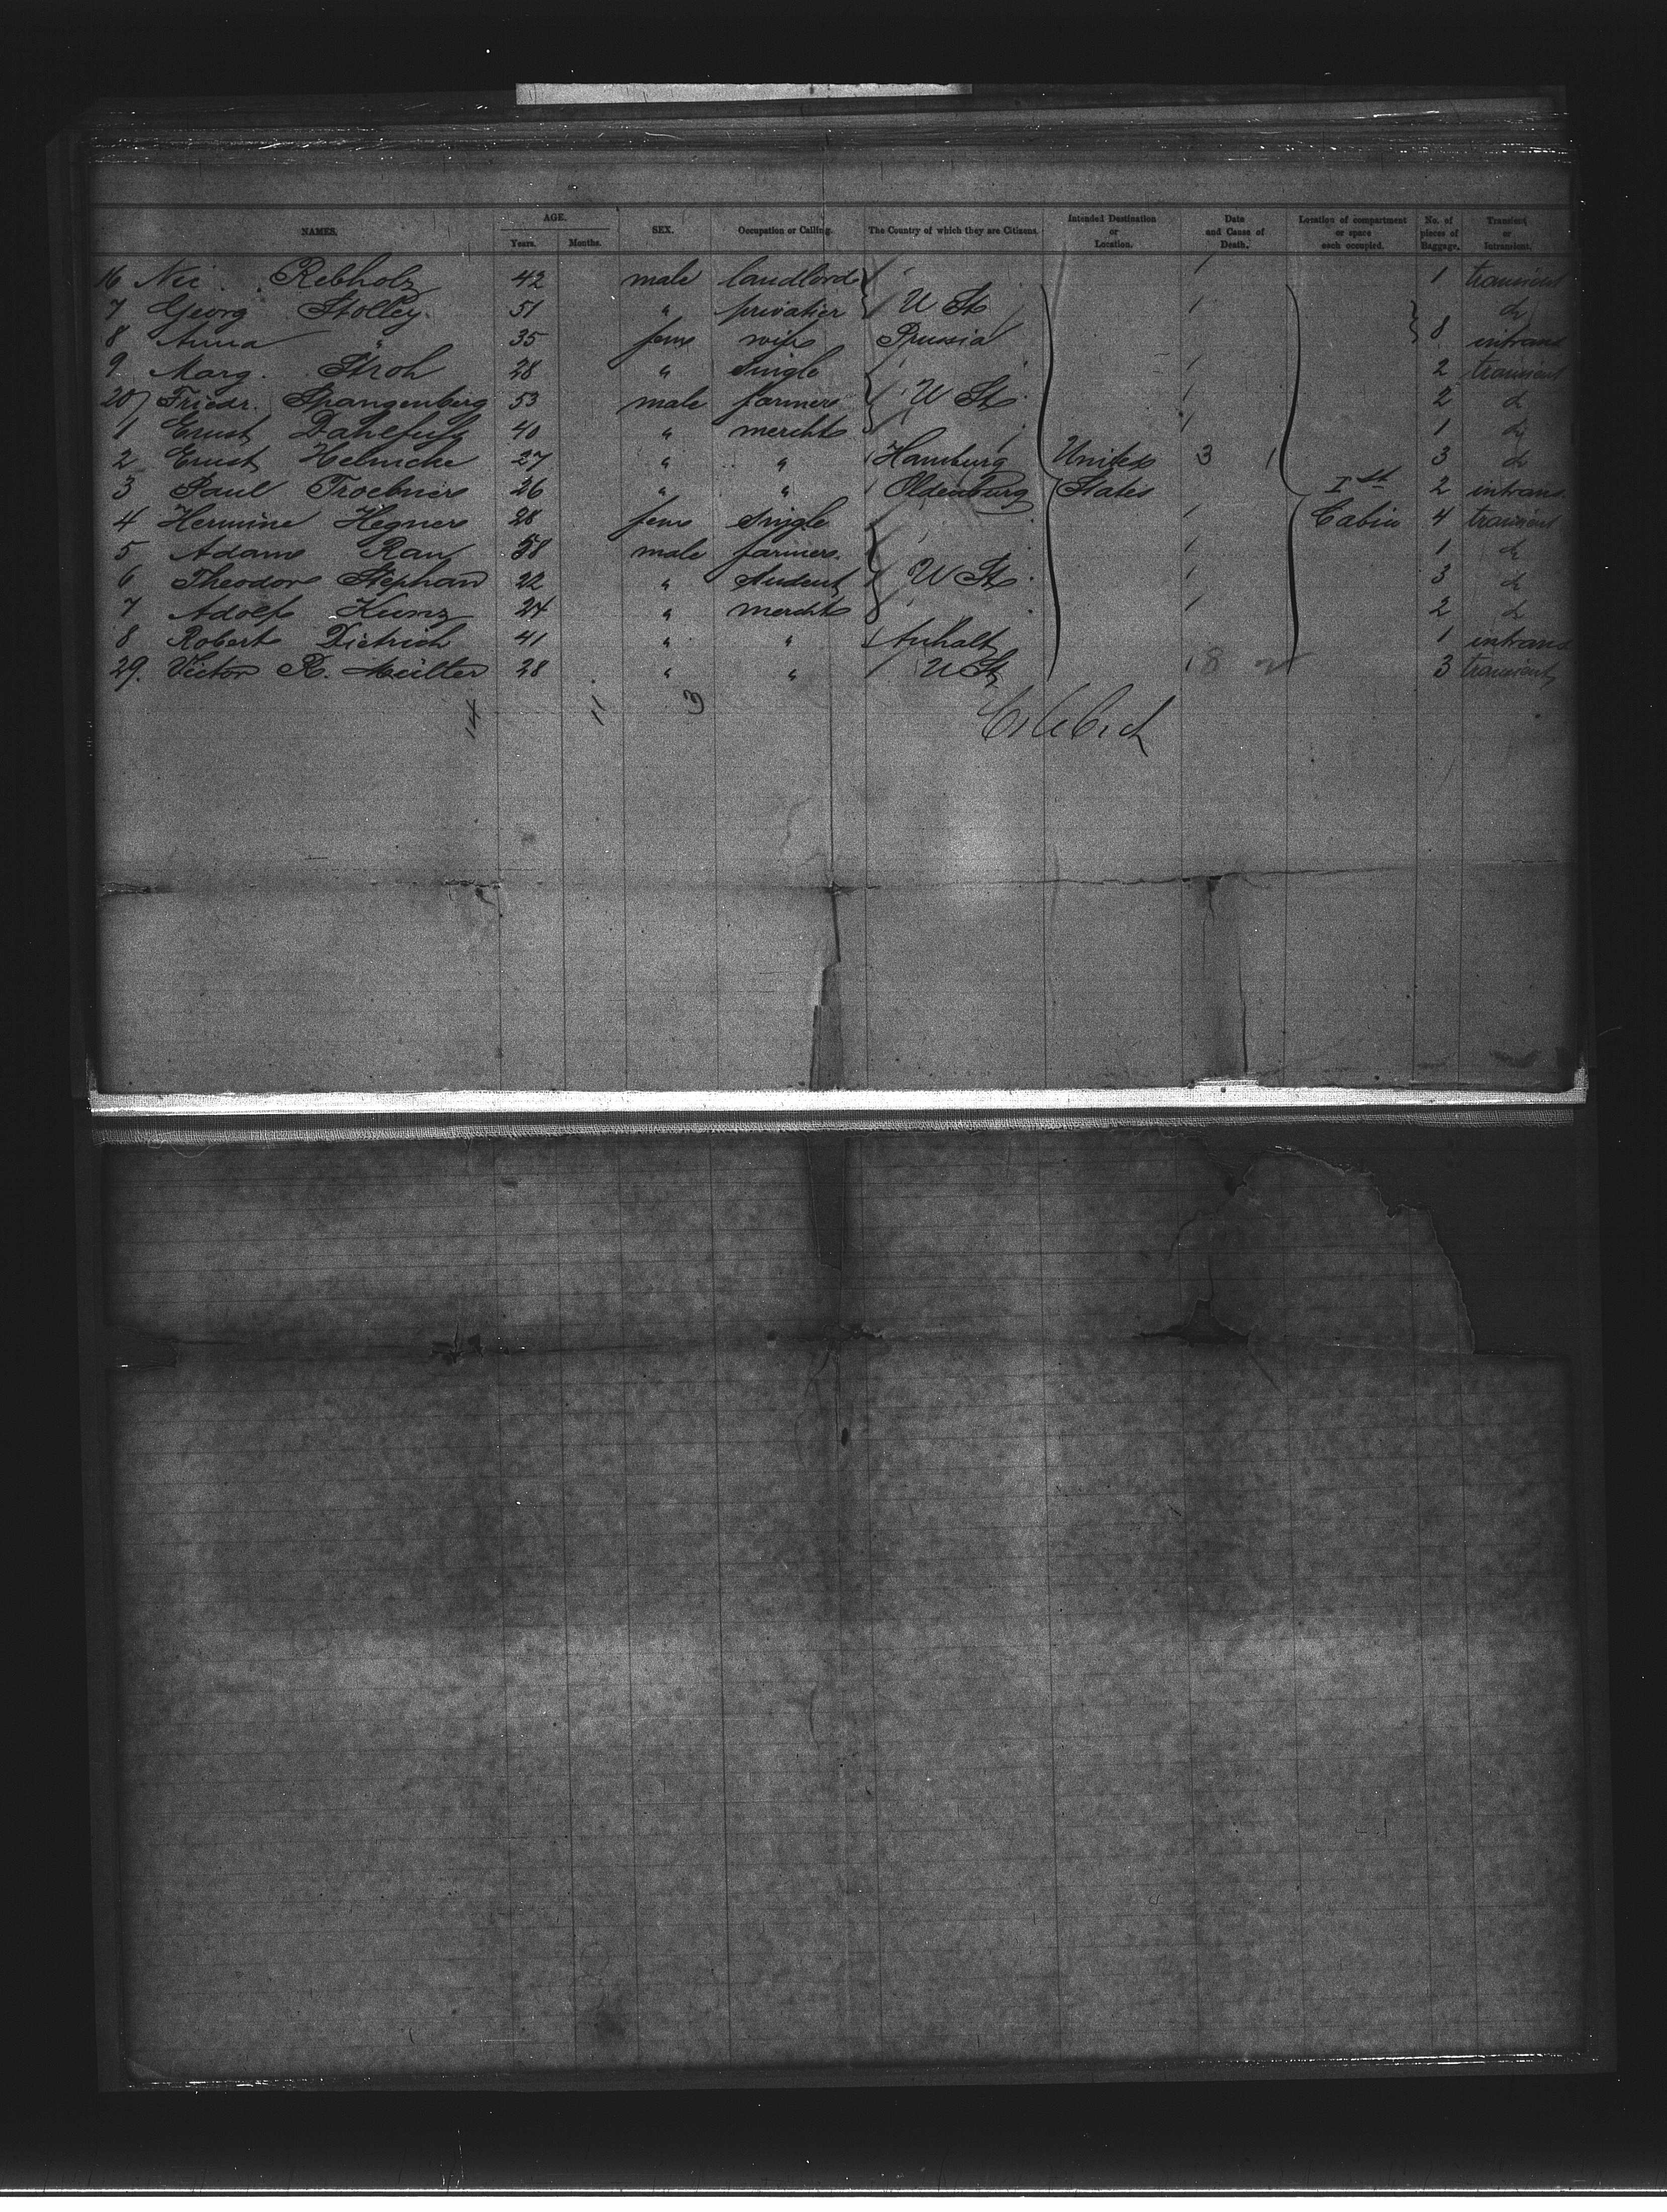 NAMES. AGE. Years. Months. SEX. Occupation or Calling. The Country of which they are Citizens. Intended Destination or Location. Date and Cause of Death. Location of compartment or space each occupied. No. of pieces of Baggage. Transient or Intransient.
16 Nic. Rebholz 42 male landlord 1 transient
7 Georg Stolley 51 " privatier U St. do
8 Anna " 35 fem wife Prussia 8 intrans
9 Marg. Stroh 28 " single 2 transient
20 Friedr. Spangenberg 53 male farmer U St. 2 do
1 Ernst 40 " mercht 1 do
2 Ernst Helmcke 27 " " Hamburg United 3 3 do
3 Paul Troebner 26 " " Oldenburg States Ist 2 intrans
4 Hermine Hegner 28 fem single Cabin 4 transient
5 Adam Rau 58 male farmer 1 do
6 Theodor Stephan 22 " Student U St. 3 do
7 Adolf Kunz 24 " mercht 2 do
8 Robert Dietrich 41 " " Anhalt 1 intrans
29. Victor R. Müller 28 " " U St. 8 3 transient
14 11 3